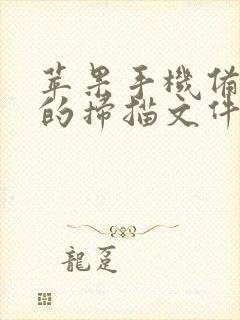 苹果手機俻
的掃描文件
龍跫